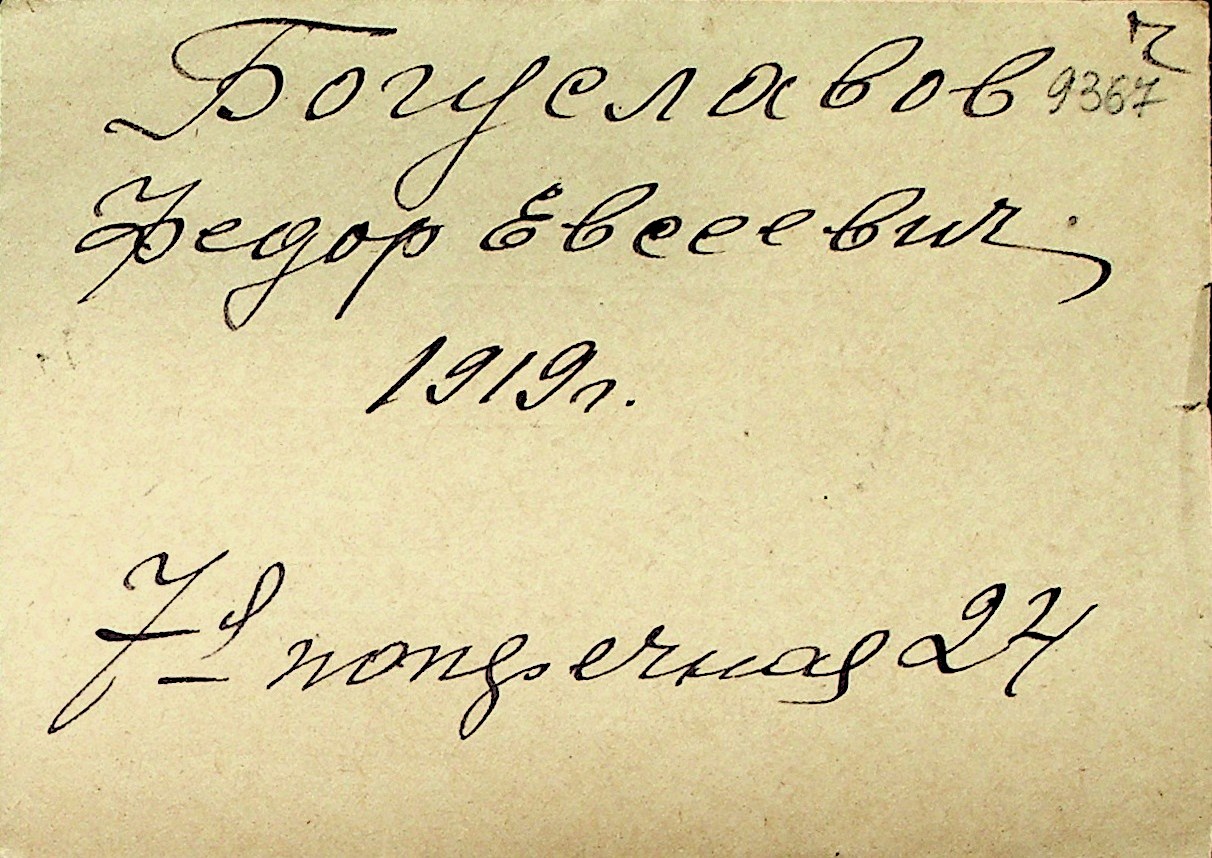 Богуславов
9367
Федор Евсеевич
1919г.
7я поперечная 24